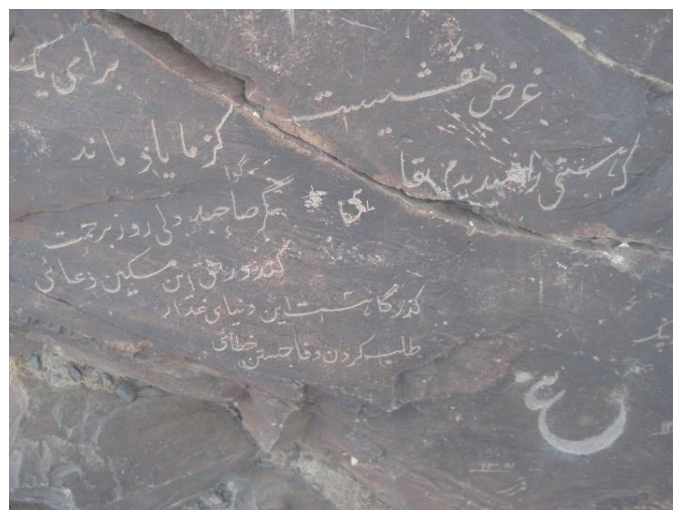 برای یک
غرض نقشیست
کز ما یاد ماند
کهستی را نمیدیدم بقا
مگر صاحبدلی روز برحمت
کند در حق این مسکین دعائی
گذرگاهست این دنیای غدار
طلب کردن وفا جستن خطای